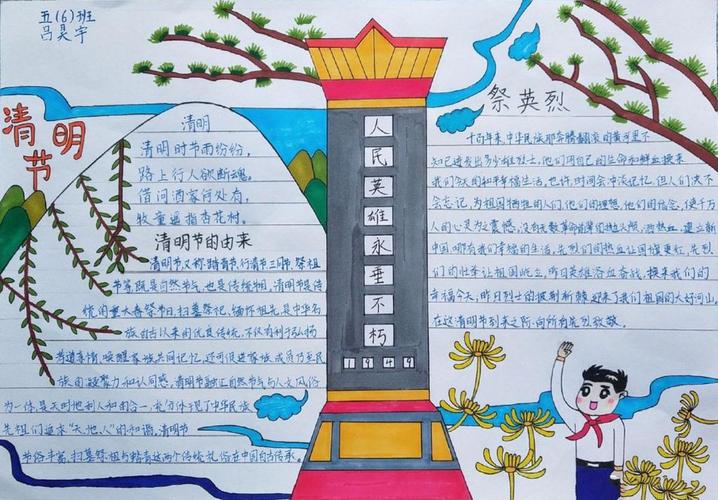 五(6)班
吕昊宇
清明节
清明
清明时节雨纷纷,
路上行人欲断魂。
借问酒家何处有,
牧童遥指杏花村。
清明节的由来
清明节,又称踏青节、行清节、三月节、祭祖
节等,既是自然节气,也是传统节日,清明节是传
统的重大春祭节日,扫墓祭祀、缅怀祖先,是中华名
族自古以来的优良传统,不仅有利于弘扬
孝道亲情、唤醒家族共同记忆,还可促进家族成员乃至民
族的凝聚力和认同感。清明节融汇自然节气与人文风俗
为一体,是天时地利人和的合一,充分体现了中华民族
先祖们追求“天、地、人”的和谐,清明节
节俗丰富,扫墓祭祖与踏青这两个传统礼俗在中国自古传承。
人民英雄永垂不朽
1949
祭英烈
千百年来,中华民族那奔腾翻滚的黄河里不
知已迸发出多少雄壮烈士,他们用自己的生命和鲜血换来
我们今天的和平幸福生活,也许,时间会冲淡记忆,但人们决不
会忘记,为祖国牺牲的人们,他们的理想,他们的信念,使千万
人的心灵为之震撼,没有无数革命前辈的抛头颅,洒热血,建立新
中国,哪有我们幸福的生活,先烈们的热血让国旗更红,先烈
们的壮举让祖国屹立,昨日英雄浴血奋战,换来我们的
幸福今天,昨日烈士的披荆斩棘迎来了我们祖国的大好河山,
在这清明节到来之际,向所有先烈致敬。